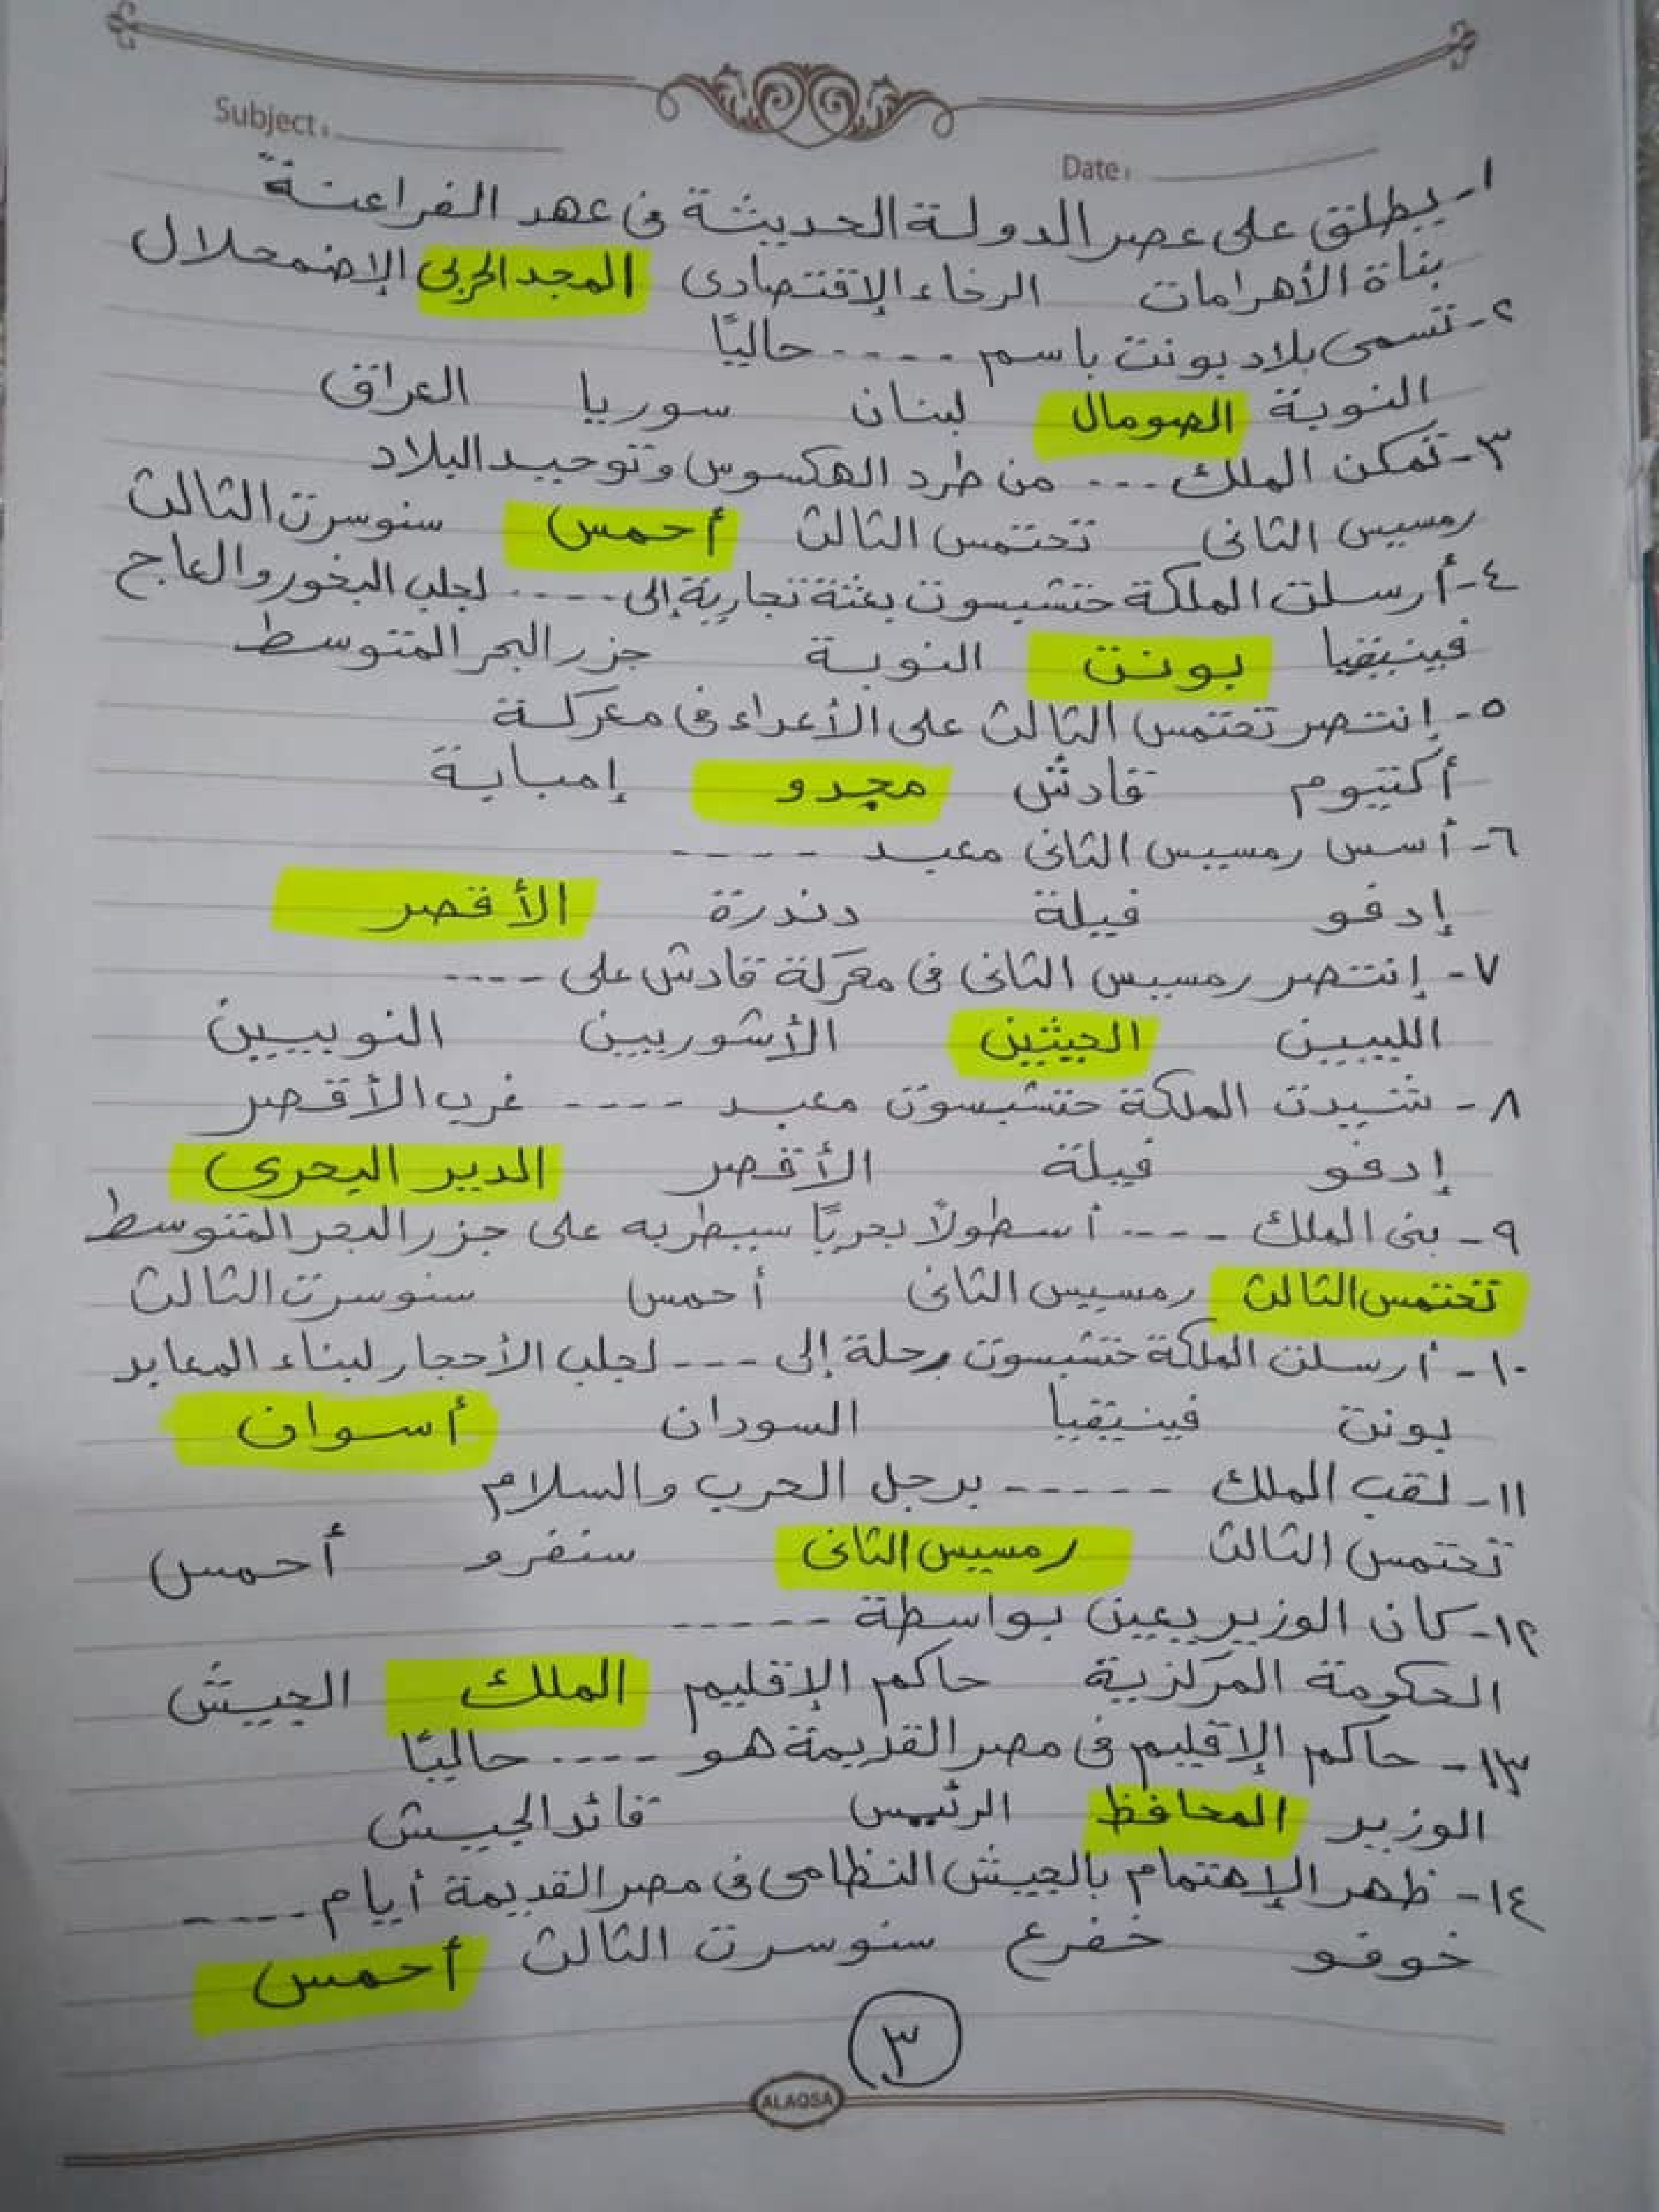 Subject:
Date:
١- يطلق على عصر الدولة الحديثة فى عهد الفراعنة
بناة الأهرامات الرخاء الإقتصادى المجد الحربى الإضمحلال
٢- تسمى بلاد بونت باسم ---- حاليًا
النوبة الصومال لبنان سوريا العراق
٣- تمكن الملك --- من طرد الهكسوس وتوحيد البلاد
رمسيس الثانى تحتمس الثالث أحمس سنوسرت الثالث
٤- أرسلت الملكة حتشبسوت بعثة تجارية إلى ---- لجلب البخور والعاج
فينيقيا بونت النوبة جزر البحر المتوسط
٥- إنتصر تحتمس الثالث على الأعداء فى معركة
أكتيوم قادش مجدو إمبابة
٦- أسس رمسيس الثانى معبد ----
إدفو فيلة دندرة الأقصر
٧- إنتصر رمسيس الثانى فى معركة قادش على ----
الليبيين الحيثين الأشوريين النوبيين
٨- شيدت الملكة حتشبسوت معبد ---- غرب الأقصر
إدفو فيلة الأقصر الدير البحرى
٩- بنى الملك ---- أسطولًا بحريًا سيطر به على جزر البحر المتوسط
تحتمس الثالث رمسيس الثانى أحمس سنوسرت الثالث
١٠- أرسلت الملكة حتشبسوت رحلة إلى --- لجلب الأحجار لبناء المعابد
بونت فينيقيا السودان أسوان
١١- لقب الملك ----- برجل الحرب والسلام
تحتمس الثالث رمسيس الثانى سنفرو أحمس
١٢- كان الوزير يعين بواسطة -----
الحكومة المركزية حاكم الإقليم الملك الجيش
١٣- حاكم الإقليم فى مصر القديمة هو ---- حاليًا
الوزير المحافظ الرئيس قائد الجيش
١٤- ظهر الإهتمام بالجيش النظامى فى مصر القديمة أيام ----
خوفو خفرع سنوسرت الثالث أحمس
٣
ALAQSA